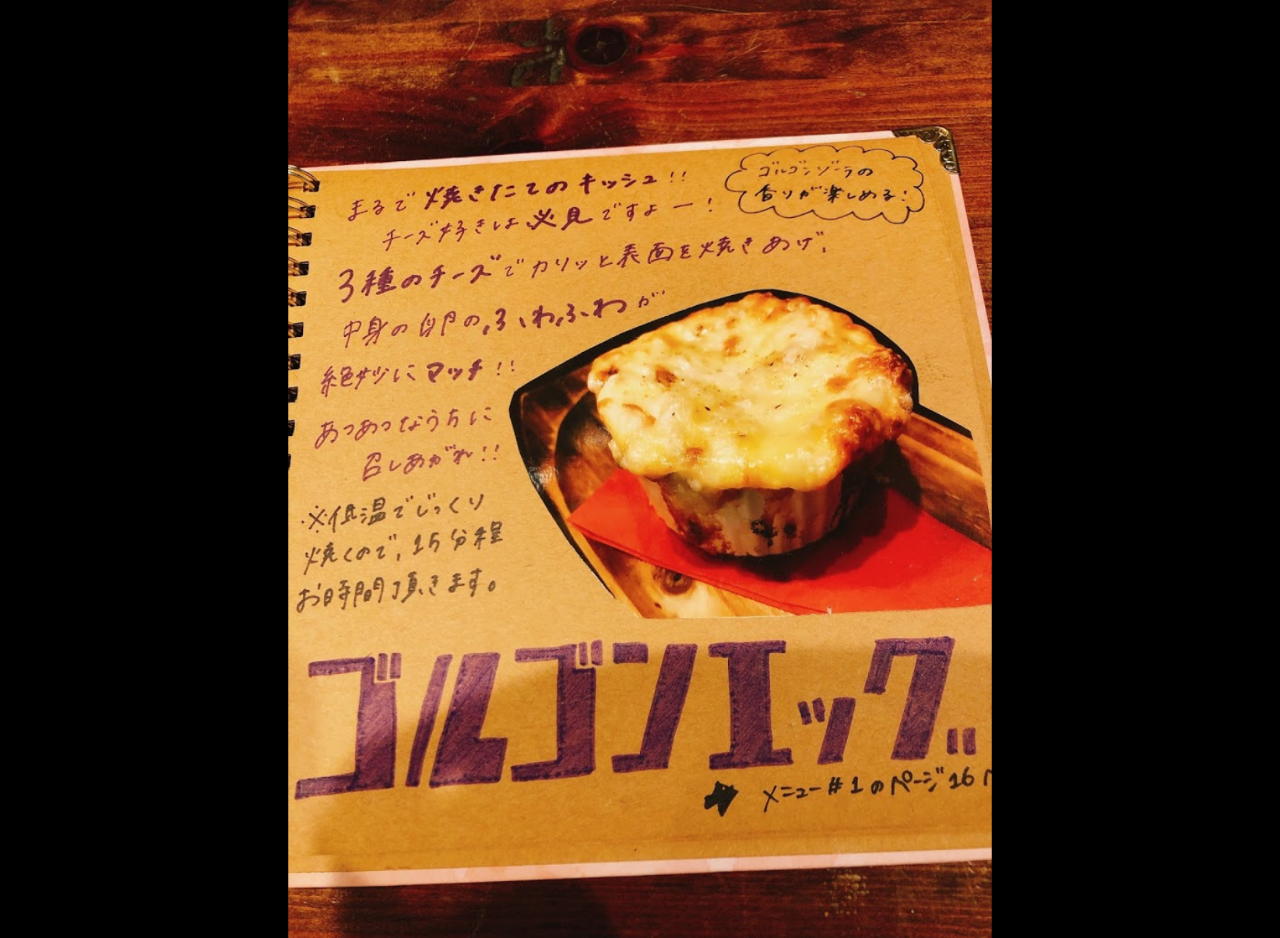 まるで焼きたてのキッシュ!!
チーズ好きは必見ですよー!
ゴルゴンゾーラの
香りが楽しめる!
3種のチーズでカリッと表面を焼きあげ、
中身の卵のふわふわが
絶妙にマッチ!!
あつあつなうちに
召しあがれ!!
※低温でじっくり
焼くので、15分程
お時間頂きます。
ゴルゴンエッグ
メニュー#1のページ16